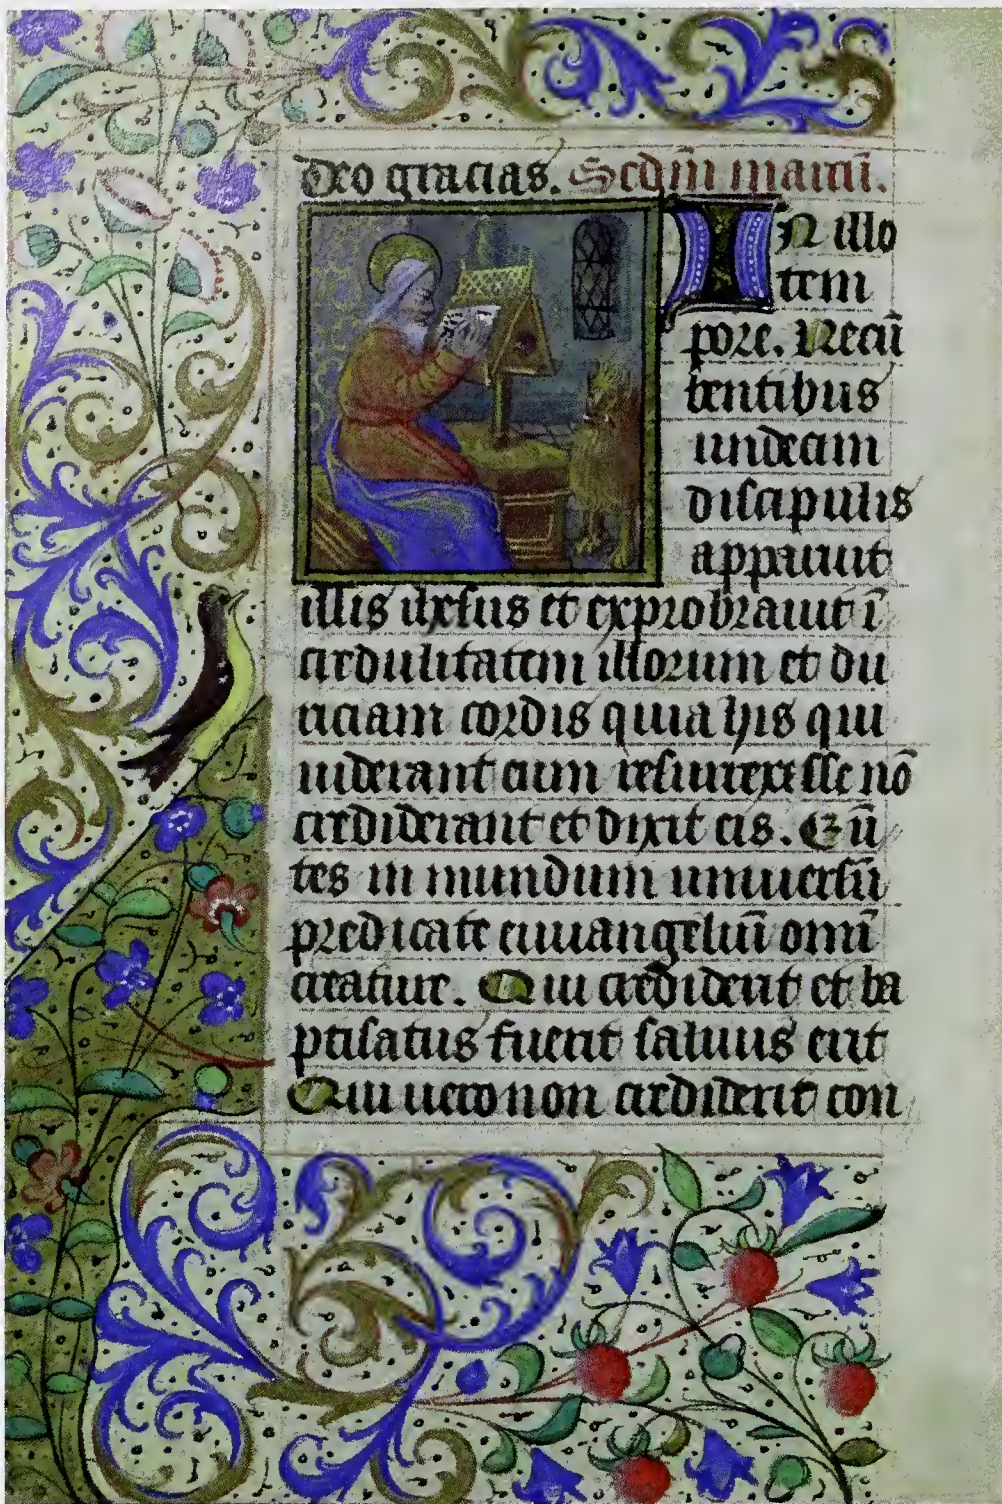 Deo gracias. Scdm̄ marcū.
IN illo
tem
pore. Recū
bentibus
undecim
discipulis
apparuit
illis ihesus et exprobrauit ī
credulitatem illorum et du
riciam cordis quia his qui
uiderant eum resurrexisse nō
crediderant et dixit eis. Eū
tes in mundum uniuersū
predicate euuangeliū omī
creature. Qui crediderit et ba
ptisatus fuerit saluus erit
Qui uero non crediderit con